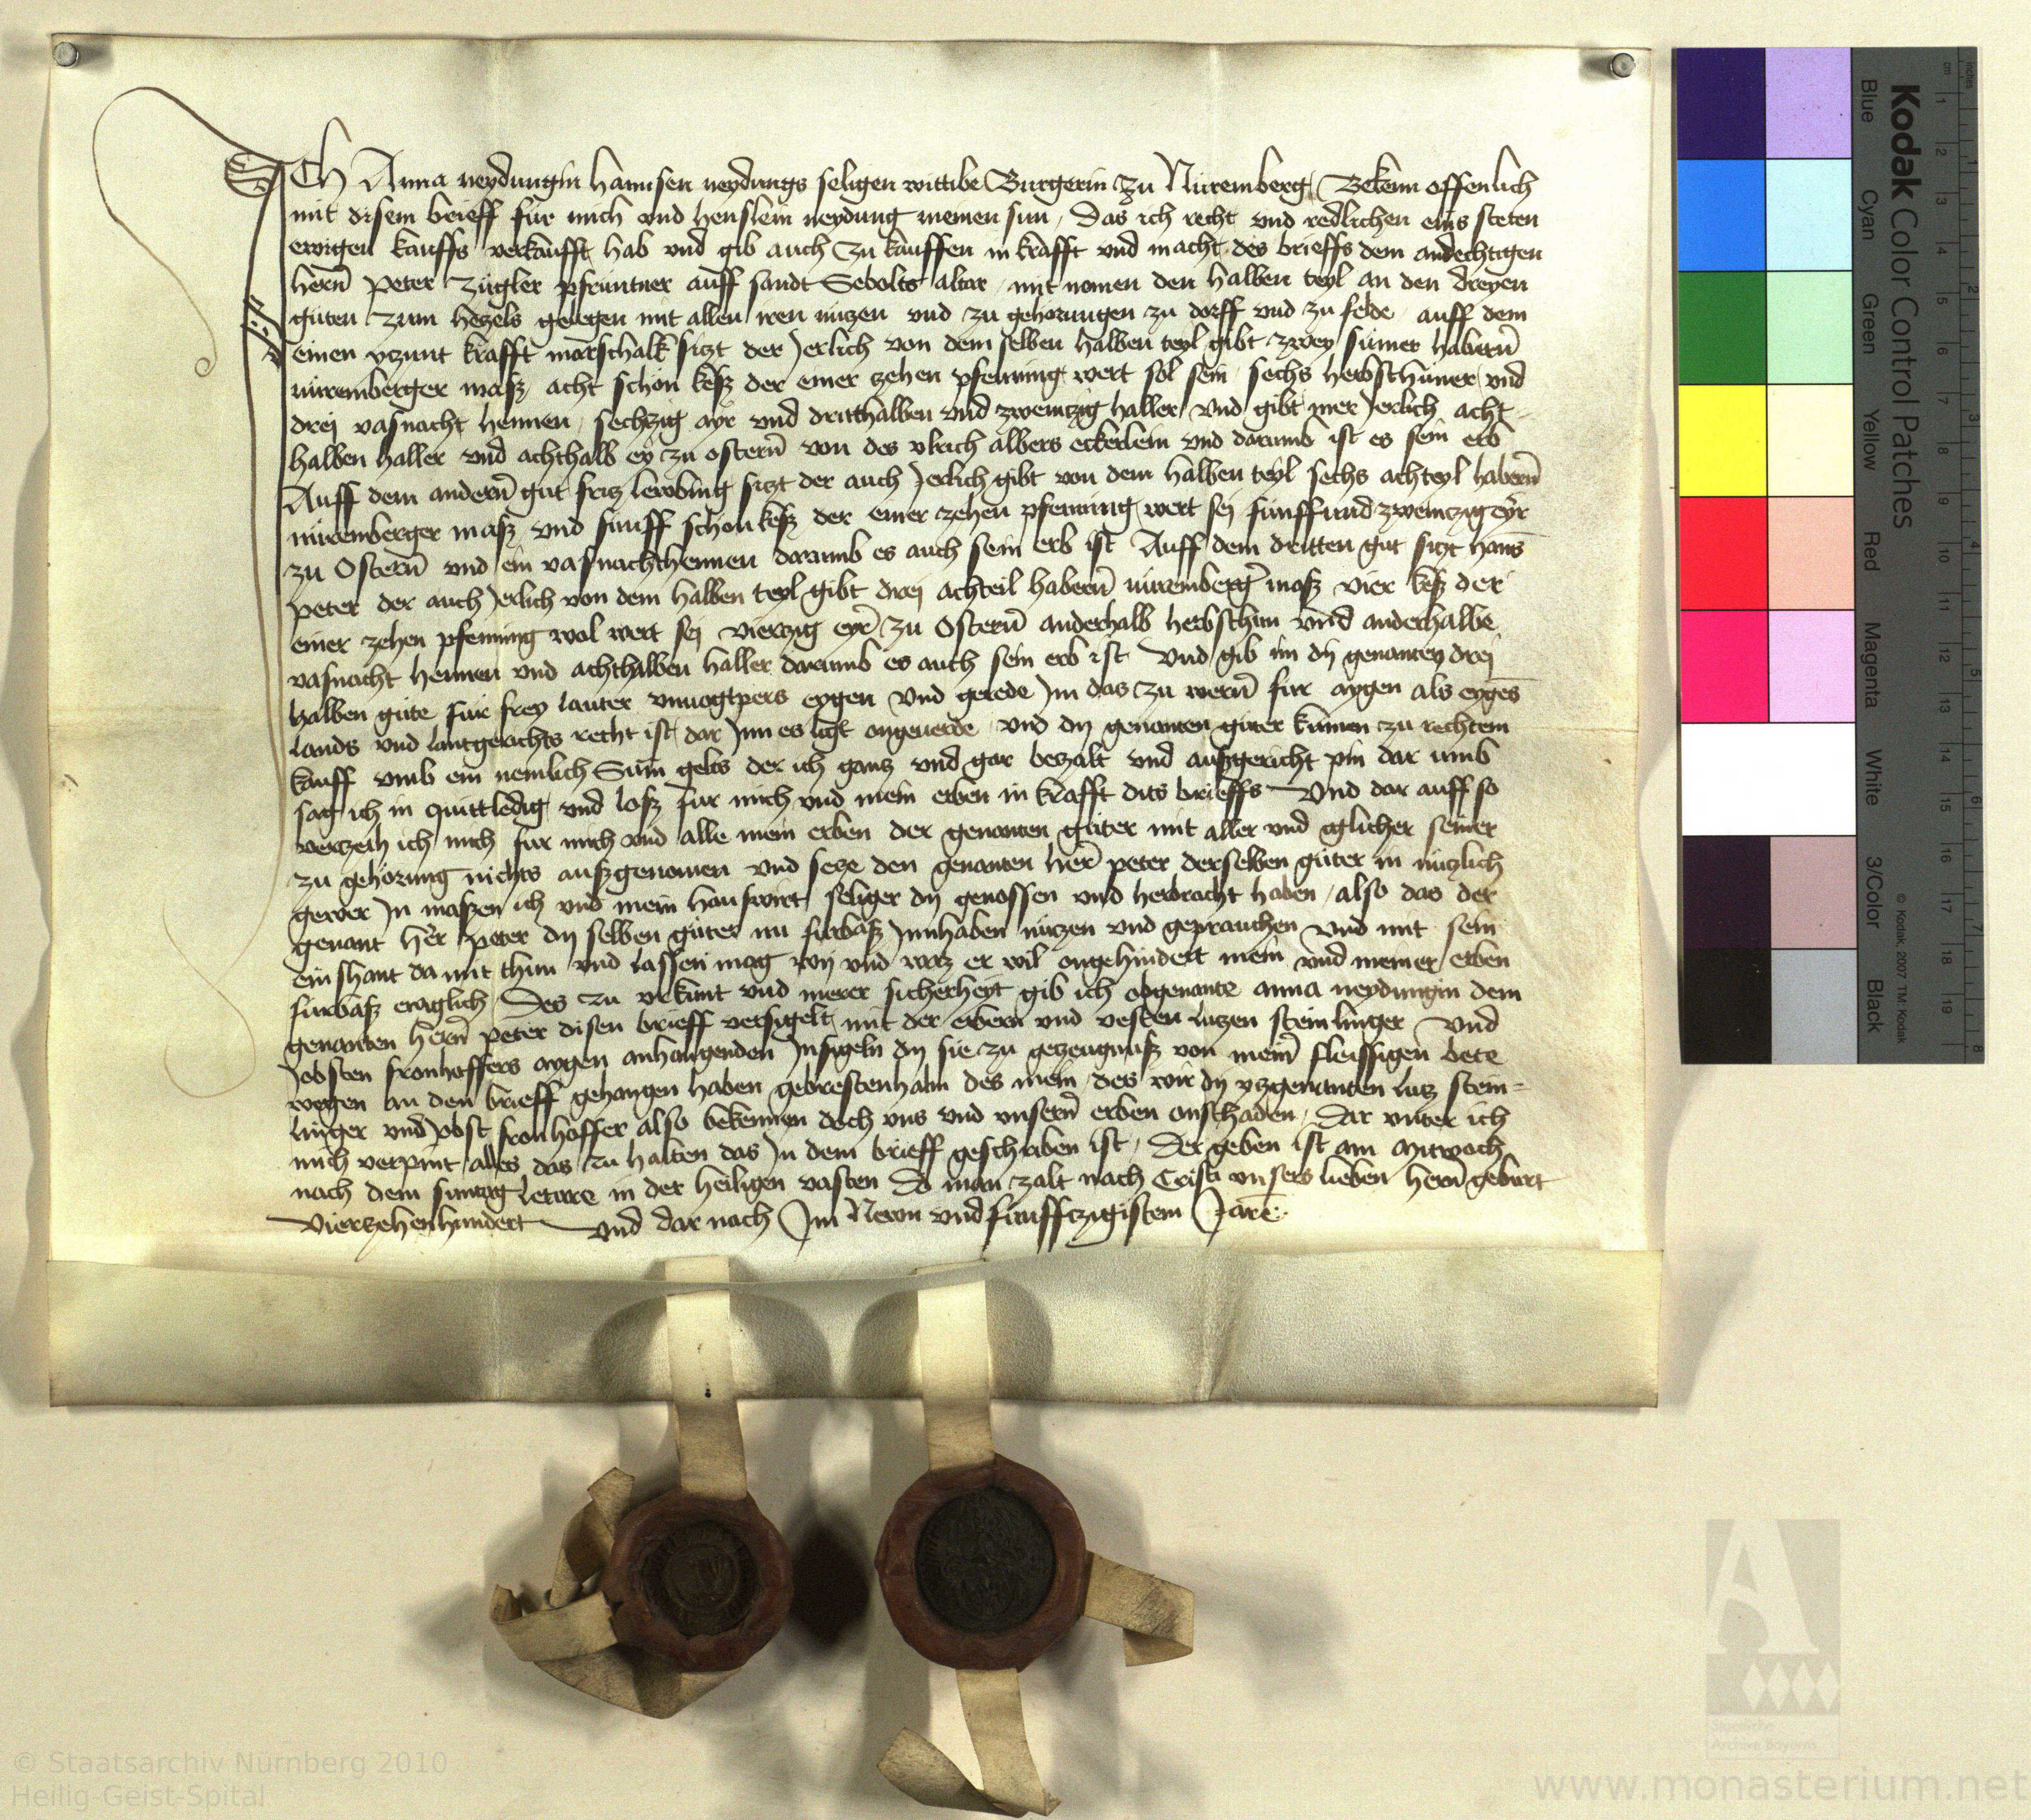 ICH Anna neydungin hannsen neydungs seligen wittibe Burgerin zu Nuremberg Bekenn offenlich
mit disem brieff für mich vnd henslein neydung meinen sun, Das ich recht vnd redlichen eins steten
ewigen kauffs verkaufft hab vnd gib auch zu kauffen in krafft vnd macht des brieffs dem andechtigen
hern̄ Peter Zügler pfruntner auff sandt Sebolts altar mit nomen den halben teyl an den dreyen
güten zum hezels gelegen mit allen iren nüzen vnd zu gehorungen zu dorff vnd zu felde auff dem
einen yczunt krafft marschalk siczt der Jerlich von dem selben halben teyl gibt zwey sümer habern̄
nüremberger masz acht schon kesz der einer zehen pfenning wert sol sein sechs herbsthüner vnd
drej vasnacht hennen, sechzig ayr vnd dritthalben vnd zweinczig haller, vnd gibt mer Jerlich acht
halben haller vnd achthalb ey zu ostern̄ von des vlrich albers eckerlein vnd darumb ist es sein erb
Auff dem andern̄ gut fricz lewbing siczt der auch Jerlich gibt von dem halben teyl sechs achteyl habern̄
nüremberger masz vnd funff schon kesz der einer zehen pfenning wert sej funffundzweinczig eyr
zu Ostern̄ vnd ein vasnachthennen darumb es auch sein erb ist Auff dem dritten gut siczt hans
peter der auch Jerlich von dem halben teyl gibt drej achteil habern̄ nüremberg̉ masz vier kesz der
einer zehen pfenning wol wert sej vierczig eyr zu Ostern̄ anderhalb herbsthun vnd anderhalbe
vasnacht hennen vnd achthalben haller darumb es auch sein erb ist Vnd gib im dy genanten drej
halben güte für frey lauter vnuogtpers eygen Vnd gerede Jm das zu wern̄ fur aygen als eygēs
lands vnd lantgerichts recht ist, dar Jnn es ligt ongeuerde vnd dy genanten güter kumen zu rechtem
kauff vmb ein nemlich Sum gelts der ich gancz vnd gar beczalt vnd auszgericht pin dar umb
sag ich in quittledig vnd losz für mich vnd mein erben in krafft dits brieffs Vnd dar auff so
verczeih ich mich für mich vnd alle mein erben der genanten güter mit aller vnd yglicher seiner
zu gehörung nichts auszgenomen vnd secze den genanten her̄ peter derselben güter in nüczlich
gewer Jn maszen ich vnd mein hauswirt seliger dy genossen vnd herbracht haben, also das der
genant her̄ peter dy selben güter nu fürbasz Jnnhaben nüczen vnd geprauchen vnd mit sein
ein shant da mit thun vnd lassen mag wy vnd waz er wil ongehindert mein vnd meiner erben
fürbasz ewiglich Des zu vrkunt vnd merer sicherheyt gib ich obgenante anna neydungin dem
genanten hern̄ peter disen brieff versigelt mit der erbern vnd vesten luczen steinlinger vnd
Jobsten fronhoffers aygen anhangenden Jnsigeln dy sie zu geczeugnusz von meīr fleissigen bete
wegen an den brieff gehangen haben gebrestenhalm des mein, des wir dy yczgenanten lucz stein=
linger vnd Jobst fronhoffer also bekennen doch vns vnd vnsern̄ erben onschaden, Dar vnter ich
mich verpint alles das zu halten das Jn dem brieff geschriben ist, Der geben ist am Mitwoch
nach dem suntag letare in der heiligen vasten Do man zalt nach Cristi vnsers lieben hern̄ geburt
vierzehenhundert vnd dar nach Jm Newn vnd funffczigistem Jare
Kodak Color Control Patches
Blue Cyan Green Yellow Red Magenta White 3/Color Black
© Kodak, 2007 TM: Kodak
cm 1 2 3 4 5 6 7 8 9 10 11 12 13 14 15 16 17 18 19
inches 1 2 3 4 5 6 7 8
© Staatsarchiv Nürnberg 2010
Heilig-Geist-Spital
Staatliche
Archive Bayerns
www.monasterium.net